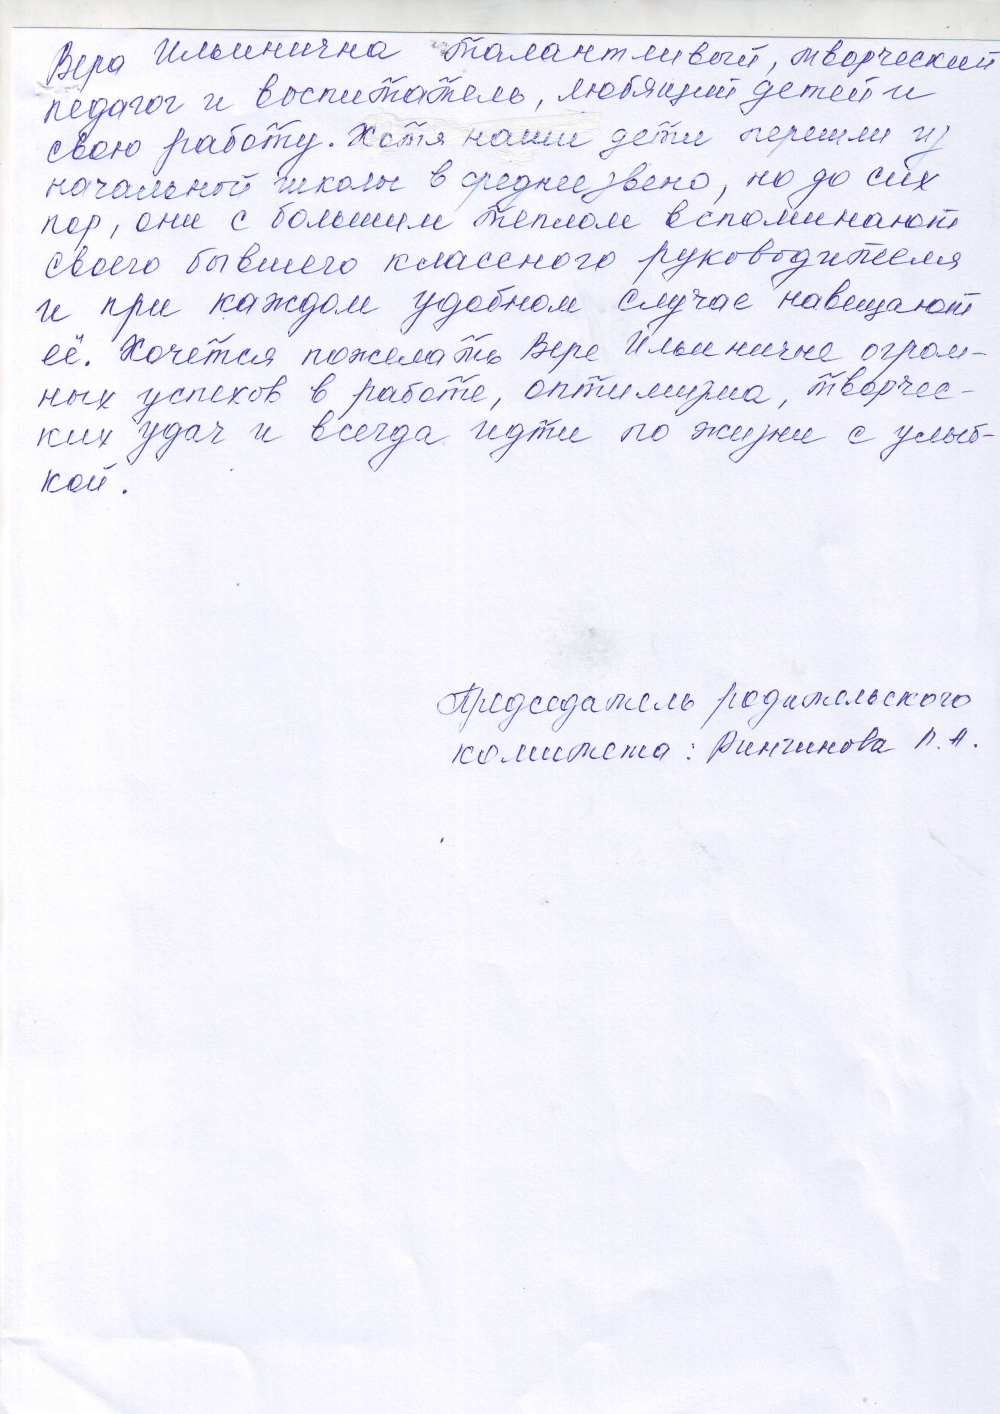 Вера Ильинична талантливый, творческий
педагог и воспитатель, любящий детей и
свою работу. Хотя наши дети перешли из
начальной школы в среднее звено, но до сих
пор, они с большим теплом вспоминают
своего бывшего классного руководителя
и при каждом удобном случае навещают
её. Хочется пожелать Вере Ильиничне огром-
ных успехов в работе, оптимизма, творчес-
ких удач и всегда идти по жизни с улыб-
кой.
Председатель родительского
комитета: Ринчинова Л.А.